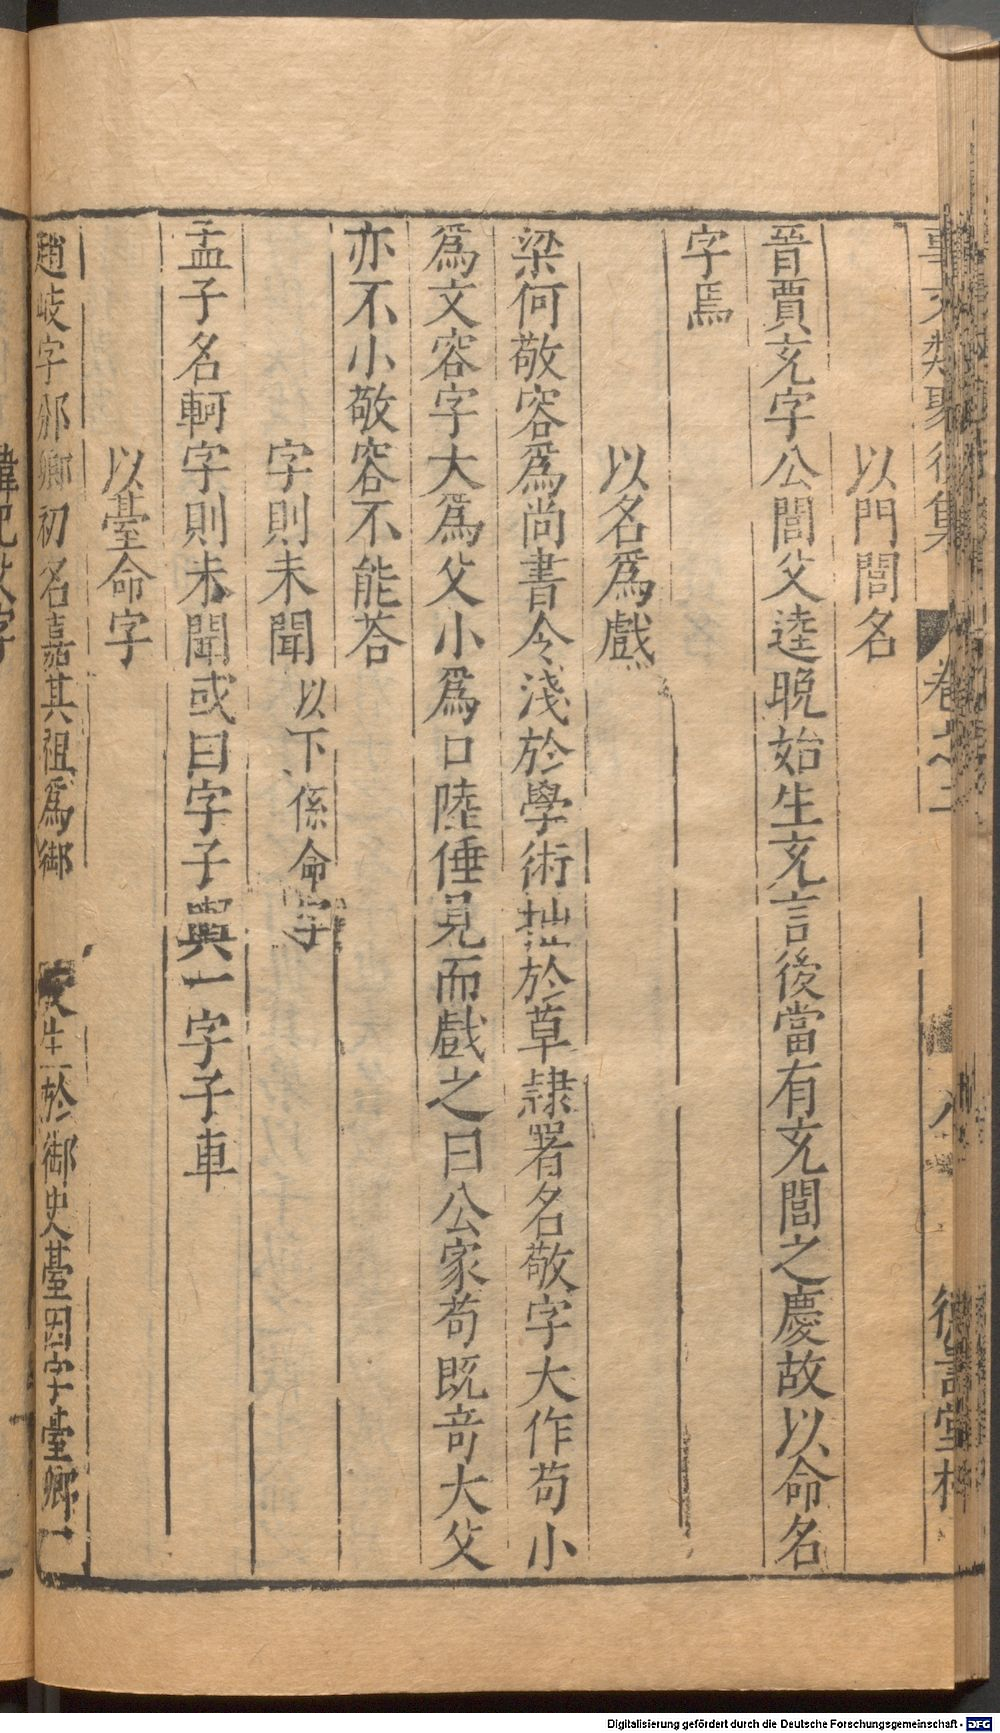 事文類聚後集 卷之二 八
以門閭名
晉賈充字公閭父逵晚始生充言後當有充閭之慶故以命名
字焉
以名爲戲
梁何敬容爲尚書令淺於學術拙於草隷署名敬字大作苟小
爲文容字大爲父小爲口陸倕見而戲之曰公家苟既竒大父
亦不小敬容不能荅
字則未聞 以下係命字
孟子名軻字則未聞或曰字子輿一字子車
以臺命字
趙岐字邠卿初名嘉其祖爲御 生於御史臺因字臺卿
Digitalisierung gefördert durch die Deutsche Forschungsgemeinschaft - DFG